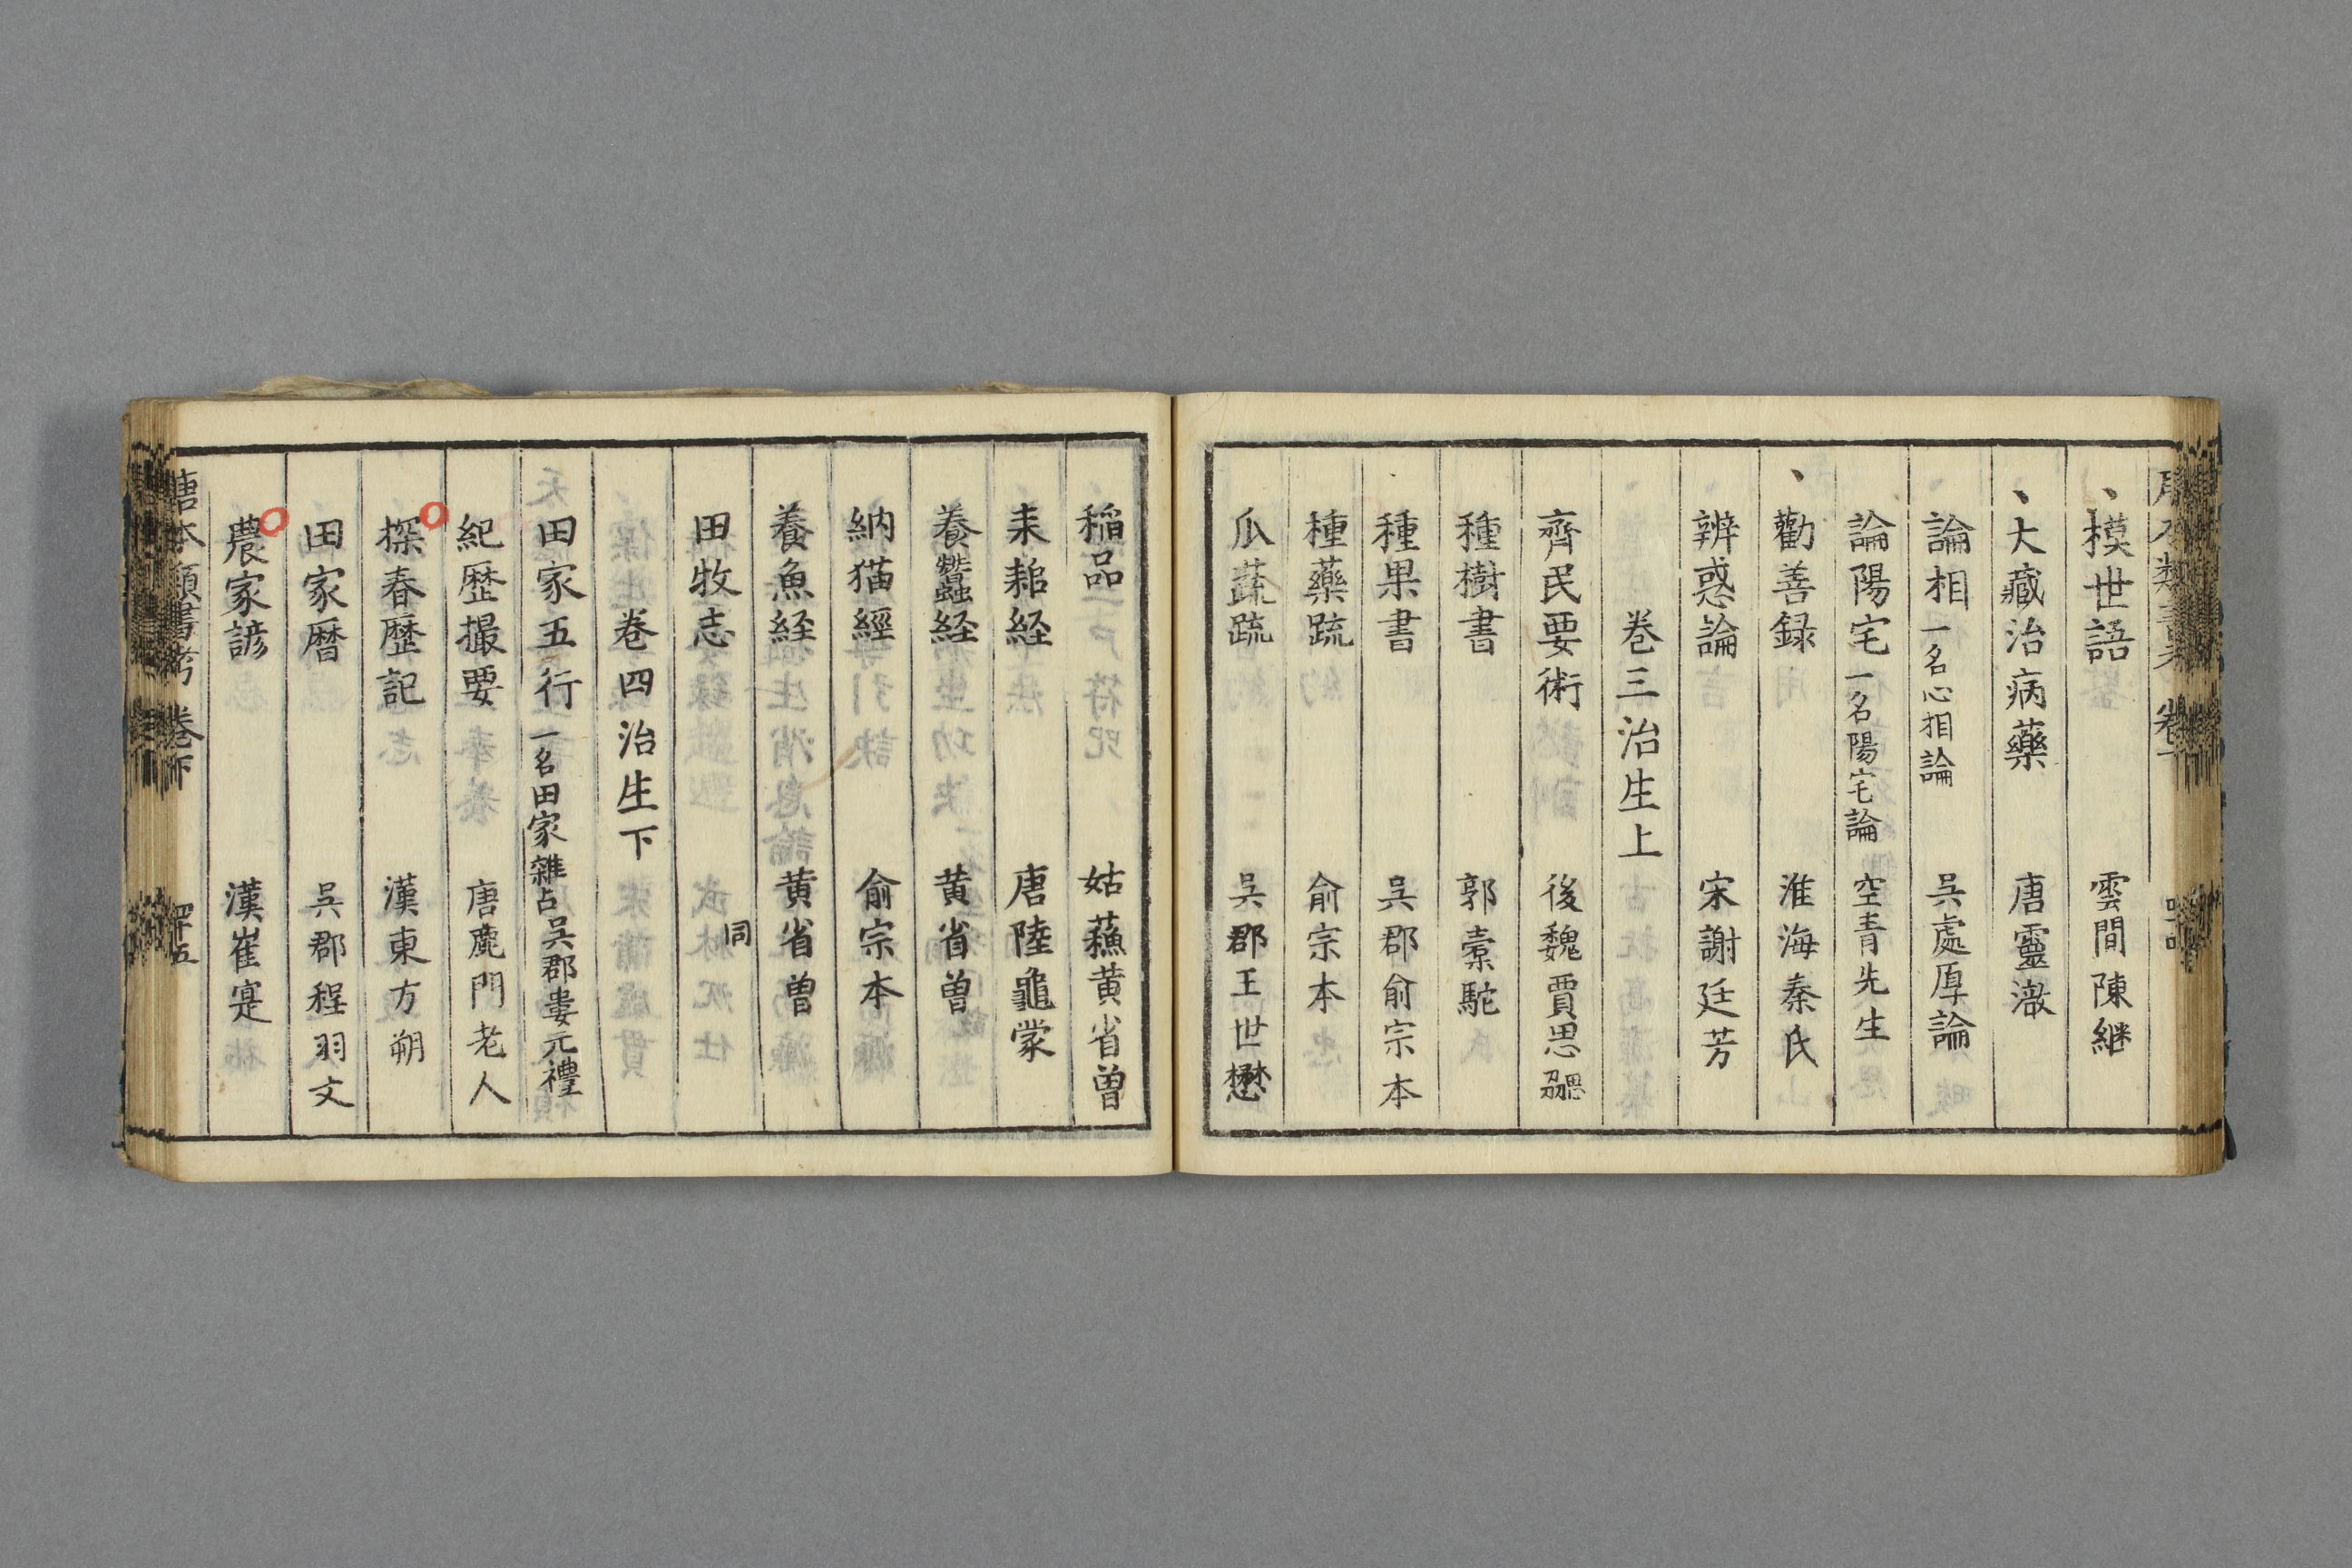 、模世語 雲間陳継
、大藏治病藥 唐靈澈
論相一名心相論 呉處厚論
論陽宅一名陽宅論 空青先生
、勸善録 淮海秦氏
辨惑論 宋謝廷芳
巻三治生上
齊民要術 後魏賈思勰
種樹書 郭橐駝
種果書 呉郡俞宗本
種藥䟽 俞宗本
瓜蔬䟽 呉郡王世懋
稲品 姑蘓黄省曽
耒耜経 唐陸龜蒙
養蠶経 黄省曽
納猫經 俞宗本
養魚経 黄省曽
田牧志 同
巻四治生下
田家五行一名田家雜占 呉郡婁元禮
紀歴撮要 唐鹿門老人
探春歴記 漢東方朔
田家暦 呉郡程羽文
農家諺 漢崔寔
唐本類書考 巻下